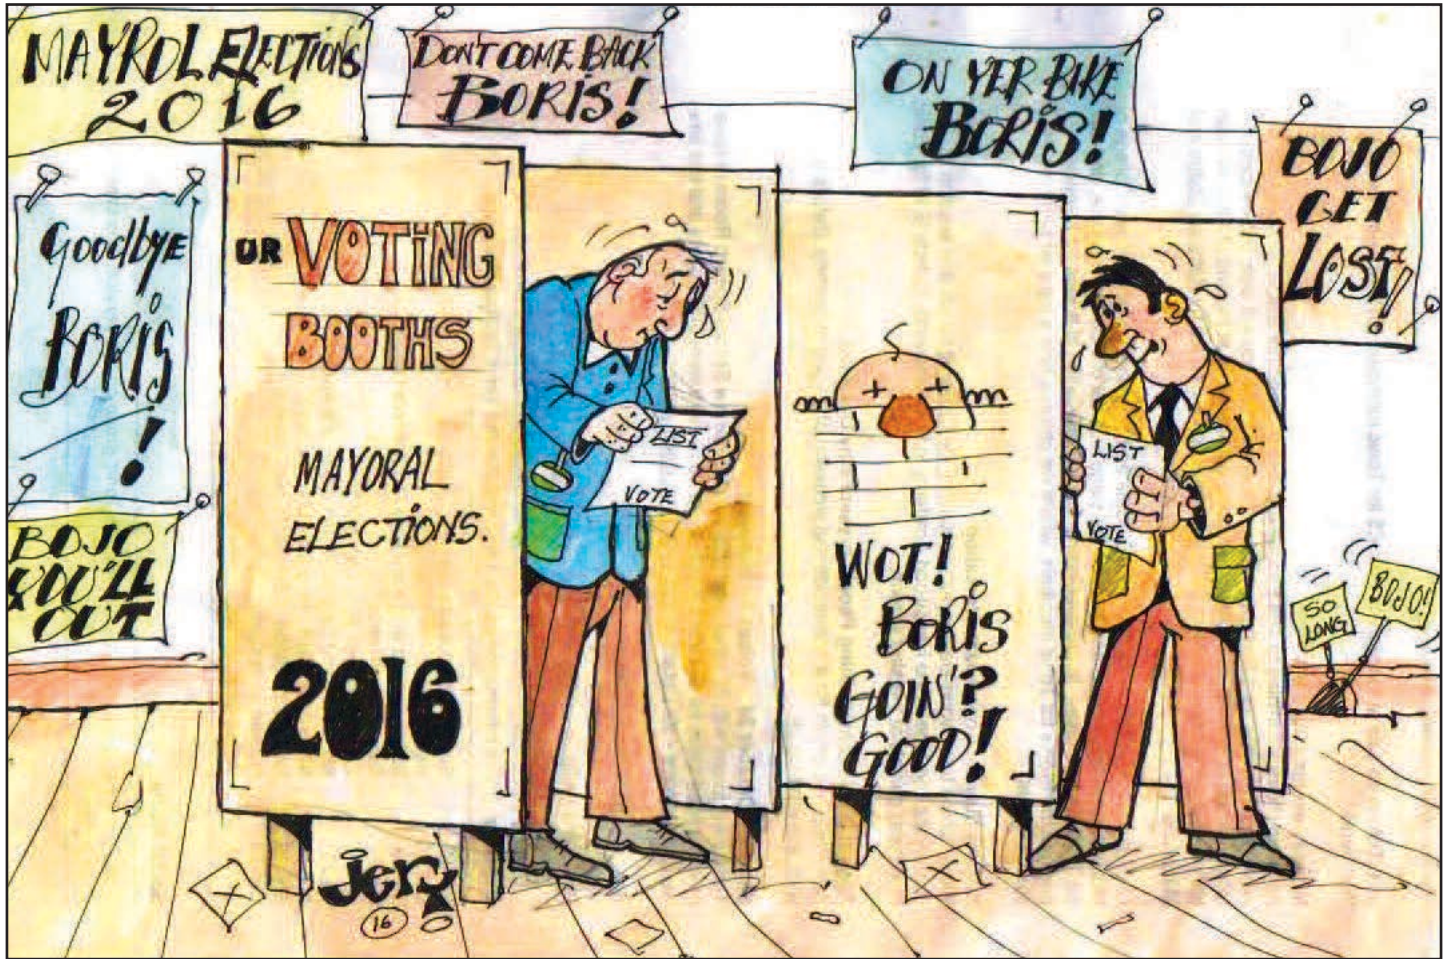 MAYROL ELECTIONS
2016
DON'T COME BACK
BORIS!
ON YER BIKE
BORIS!
BOJO
GET
LOST!
Goodbye
BORIS
!
BOJO
YOU'LL
OUT
UR VOTING
BOOTHS
MAYORAL
ELECTIONS.
2016
LIST
VOTE
WOT!
BORIS
GOIN'?
GOOD!
LIST
VOTE
SO
LONG
BOJO!!
jerx
16